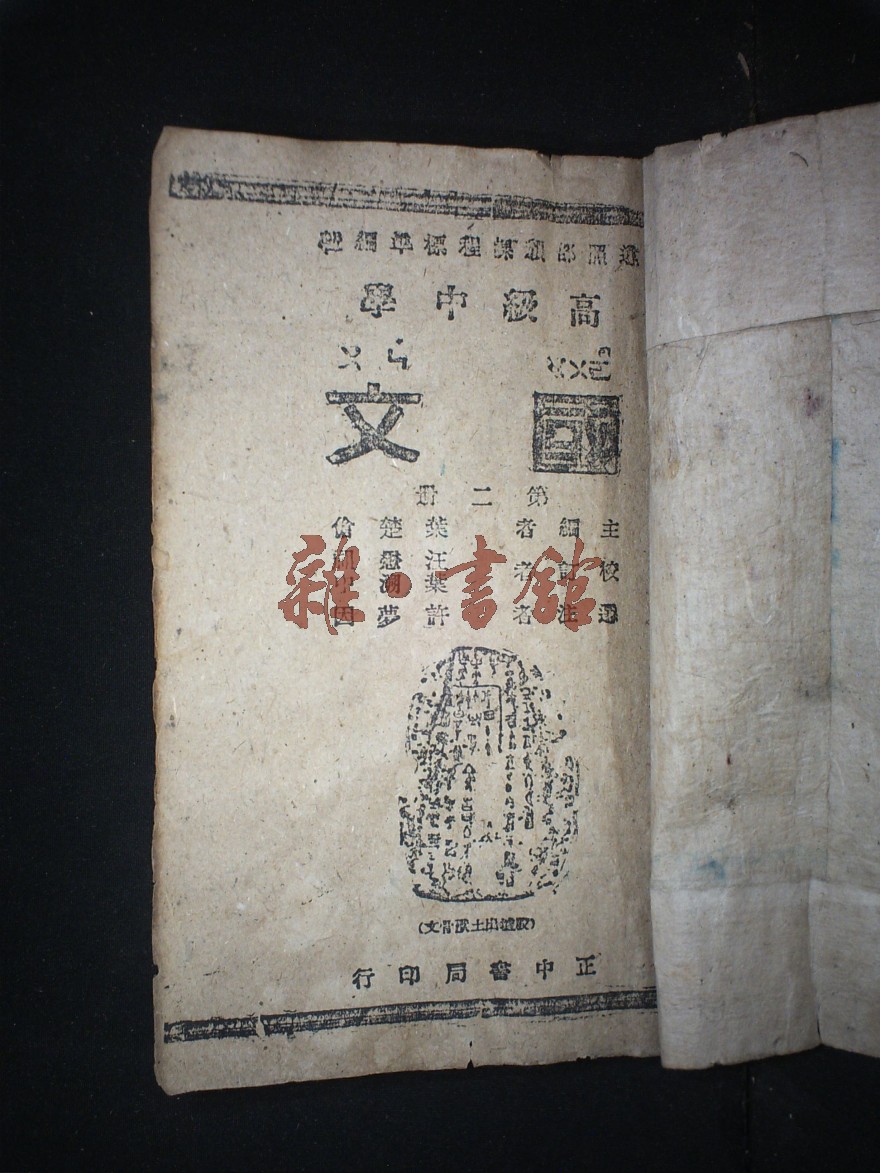 遵照部頒課程標準編輯
高級中學
ㄍㄨㄛ ㄨㄣ
國文
第二册
主編者 葉楚傖
校訂者 汪懋祖
葉溯中
選注者 許夢因
雜·書館
(殷墟出土獸骨文)
正中書局印行